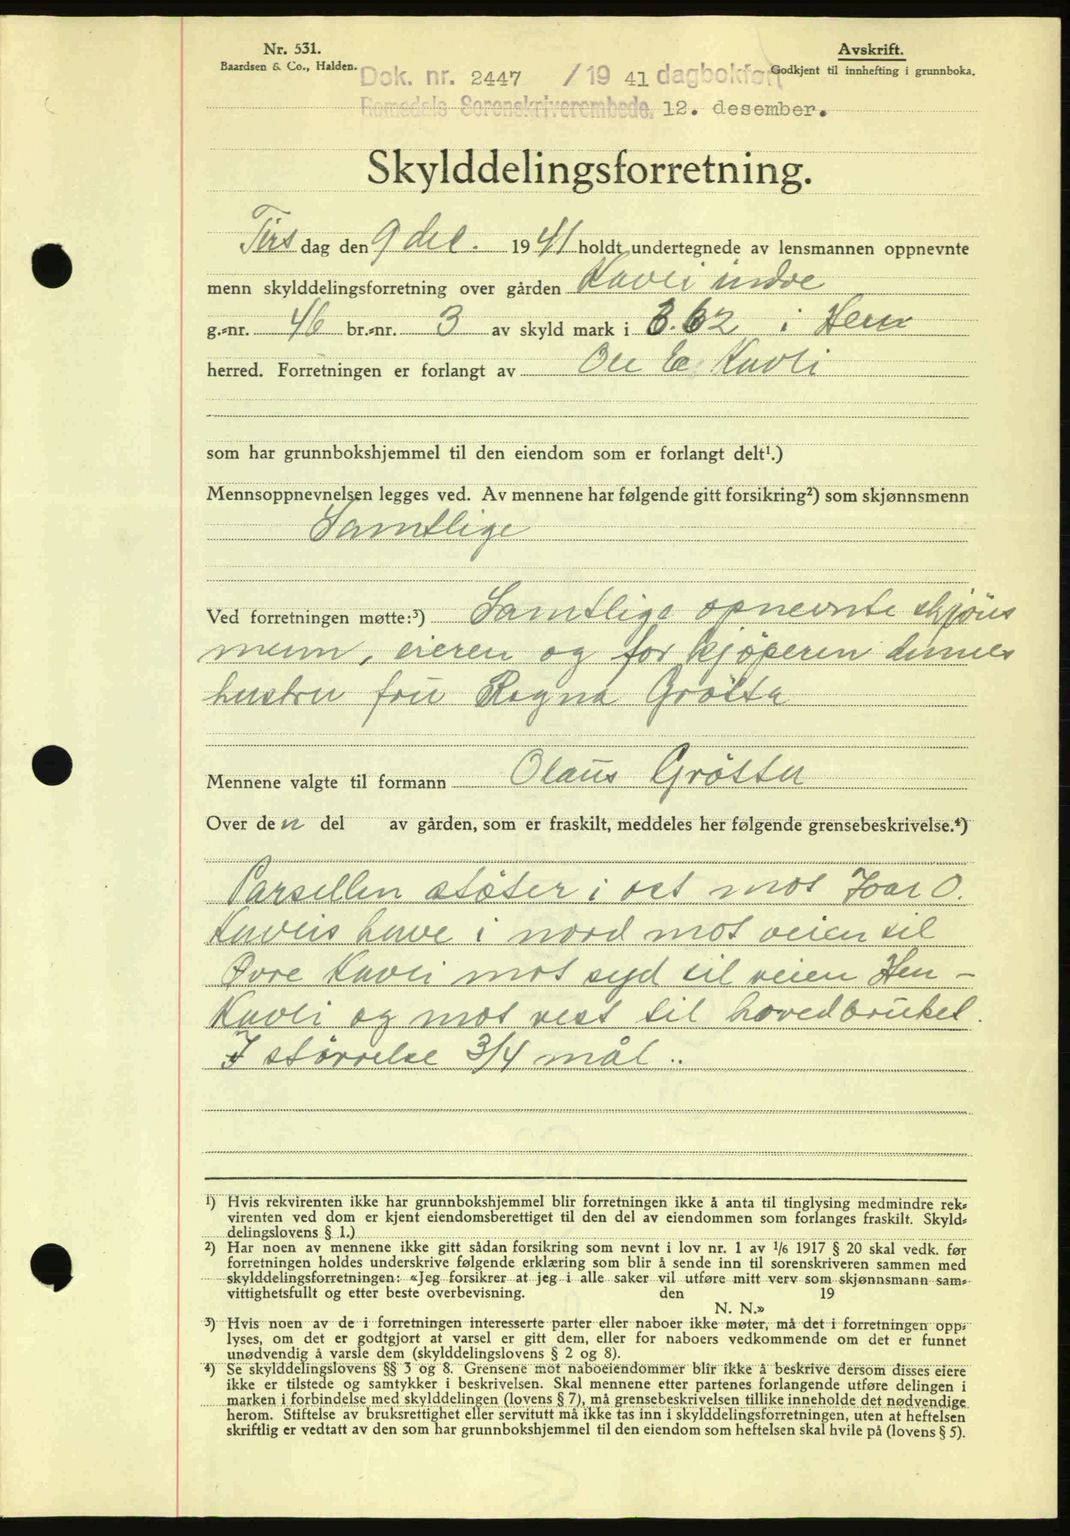 Nr. 531.
Baardsen & Co., Halden.
Avskrift.
Godkjent til innhefting i grunnboka.
Dok. nr. 2447 / 19 41 dagbokført
Romsdals Sorenskriverembede, 12. desember.
Skylddelingsforretning.
Tirs dag den 9 dec. 19 41 holdt undertegnede av lensmannen oppnevnte
menn skylddelingsforretning over gården Kavli indre
g.-nr. 46 br.-nr. 3 av skyld mark i 3.62 i Hen
herred. Forretningen er forlangt av Ole E. Kavli
som har grunnbokshjemmel til den eiendom som er forlangt delt¹.)
Mennsoppnevnelsen legges ved. Av mennene har følgende gitt forsikring²) som skjønnsmenn
Samtlige
Ved forretningen møtte:³) Samtlige opnevnte skjöns
menn, eieren og for kjöperen dennes
hustru fru Ragna Grötta
Mennene valgte til formann Olaus Grötta
Over den del av gården, som er fraskilt, meddeles her følgende grensebeskrivelse.⁴)
Parsellen stöter i øst mot Ivar O.
Kavlis have i nord mot veien til
Øvre Kavli mot syd til veien Hen-
Kavli og mot vest til hovedbruket.
I störrelse 3/4 mål..
¹) Hvis rekvirenten ikke har grunnbokshjemmel blir forretningen ikke å anta til tinglysing medmindre rek-
virenten ved dom er kjent eiendomsberettiget til den del av eiendommen som forlanges fraskilt. Skyld-
delingslovens § 1.)
²) Har noen av mennene ikke gitt sådan forsikring som nevnt i lov nr. 1 av 1/6 1917 § 20 skal vedk. før
forretningen holdes underskrive følgende erklæring som blir å sende inn til sorenskriveren sammen med
skylddelingsforretningen: «Jeg forsikrer at jeg i alle saker vil utføre mitt verv som skjønnsmann sam-
vittighetsfullt og etter beste overbevisning. den 19
N. N.»
³) Hvis noen av de i forretningen interesserte parter eller naboer ikke møter, må det i forretningen opp-
lyses, om det er godtgjort at varsel er gitt dem, eller for naboers vedkommende om det er funnet
unødvendig å varsle dem (skylddelingslovens § 2 og 8).
⁴) Se skylddelingslovens §§ 3 og 8. Grensene mot naboeiendommer blir ikke å beskrive dersom disses eiere
ikke er tilstede og samtykker i beskrivelsen. Skal mennene etter partenes forlangende utføre delingen i
marken i forbindelse med skylddelingen (lovens § 7), må grensebeskrivelsen tillike inneholde det nødvendige
herom. Stiftelse av bruksrettighet eller servitutt må ikke tas inn i skylddelingsforretningen, uten at heftelsen
skriftlig er vedtatt av den som har grunnbokshjemmel til den eiendom som heftelsen skal hvile på (lovens § 5).